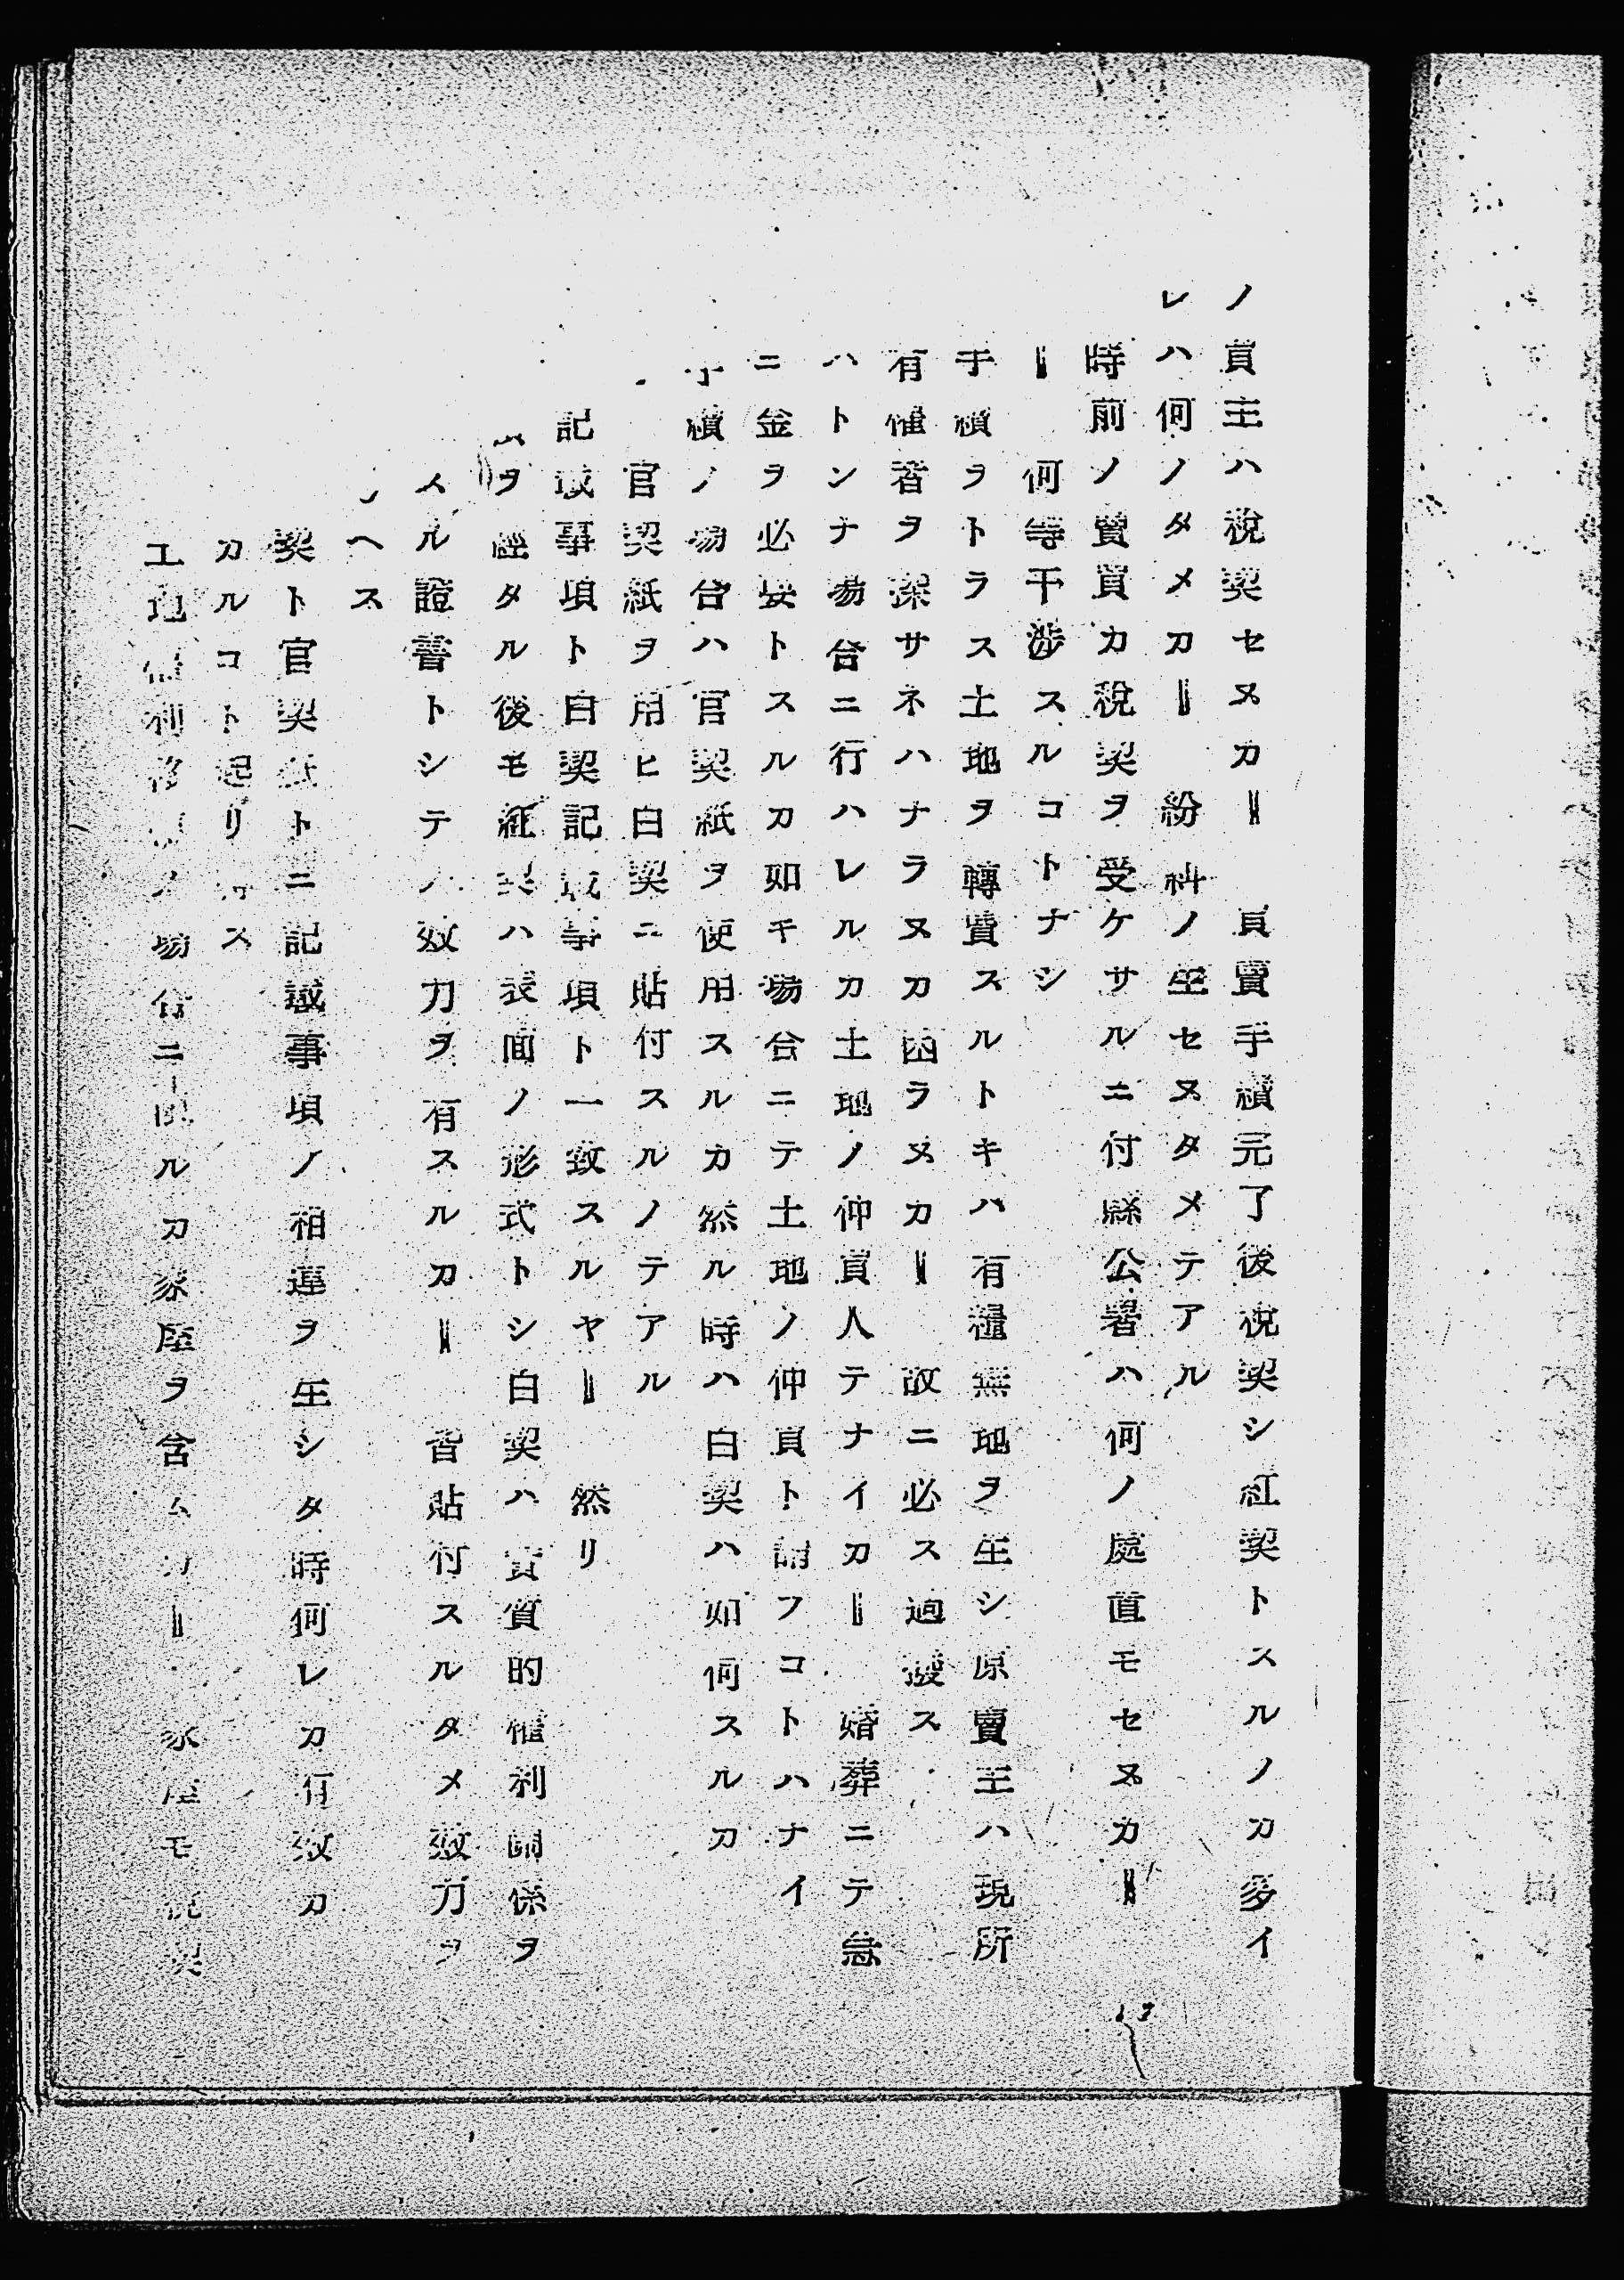 ノ買主ハ税契セヌカ‖ 買賣手續完了後税契シ紅契トスルノカ多イ
レハ何ノタメカ‖ 紛糾ノ生セヌタメテアル
時前ノ賣買カ税契ヲ受ケサルニ付縣公署ハ何ノ處置モセヌカ‖
‖ 何等干渉スルコトナシ
手續ヲトラス土地ヲ轉賣スルトキハ有糧無地ヲ生シ原賣主ハ現所
有權者ヲ探サネハナラヌカ困ラヌカ‖ 故ニ必ス過撥ス
ハトンナ場合ニ行ハレルカ土地ノ仲買人テナイカ‖ 婚葬ニテ急
ニ金ヲ必要トスルカ如キ場合ニテ土地ノ仲買ト謂フコトハナイ
手續ノ場合ハ官契紙ヲ使用スルカ然ル時ハ白契ハ如何スルカ
官契紙ヲ用ヒ白契ニ貼付スルノテアル
記載事項ト白契記載事項ト一致スルヤ‖ 然リ
ヲ經タル後モ紅契ハ表面ノ形式トシ白契ハ實質的權利關係ヲ
スル證書トシテノ效力ヲ有スルカ‖ 皆貼付スルタメ效力ヲ
ヘス
契ト官契紙トニ記載事項ノ相違ヲ生シタ時何レカ有效カ
カルコト起リ得ス
土地權利移轉ノ場合ニ限ルカ家屋ヲ含ムカ‖ 家屋モ税契